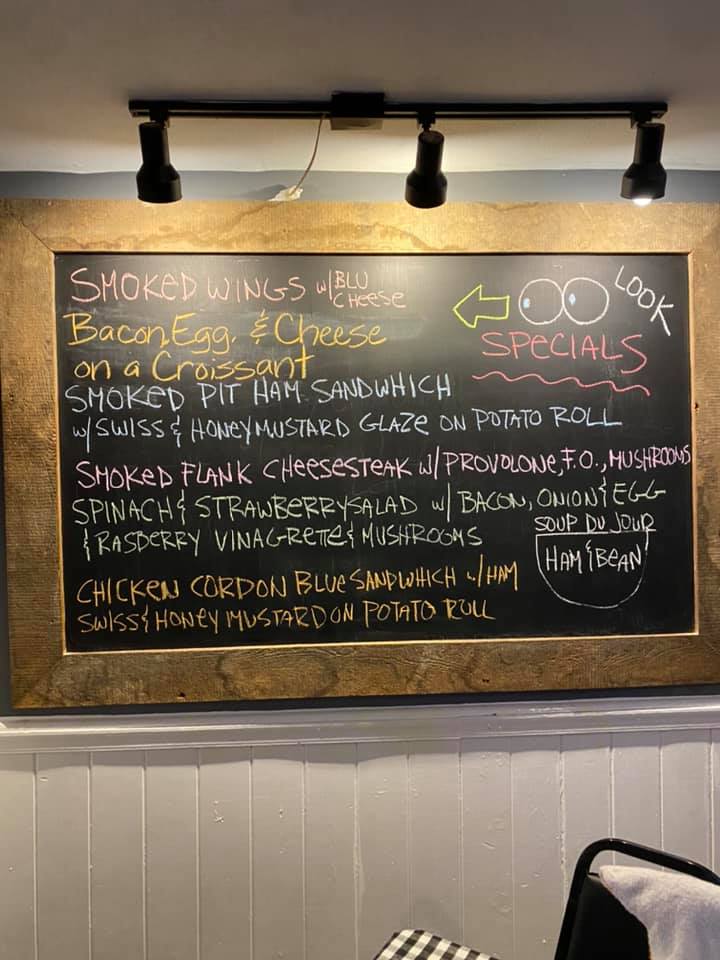 SMOKED WINGS w/ BLU CHEESE
Bacon, Egg, & Cheese
on a Croissant
SMOKED PIT HAM SANDWHICH
w/ SWISS & HONEYMUSTARD GLAZE ON POTATO ROLL
SMOKED FLANK CHEESESTEAK w/ PROVOLONE, F.O., MUSHROOMS
SPINACH & STRAWBERRY SALAD w/ BACON, ONION & EGG
& RASDERRY VINAGRETTE & MUSHROOMS
CHICKEN CORDON BLUE SANDWHICH w/ HAM
SWISS & HONEY MUSTARD ON POTATO ROLL
LOOK
SPECIALS
SOUP DU JOUR
HAM & BEAN